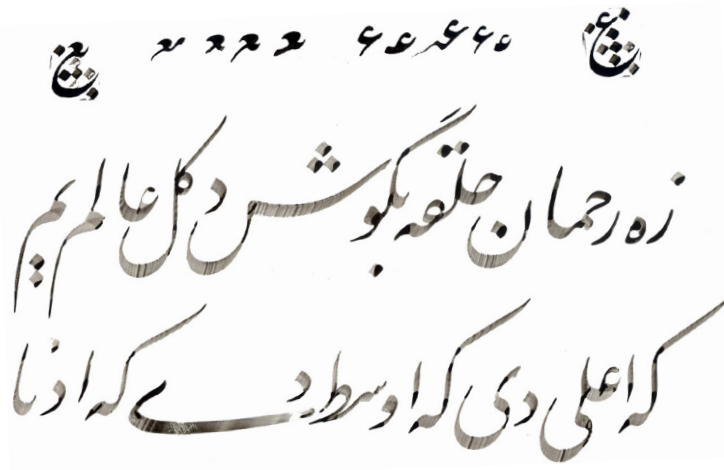 زه رحمان حلقه بگوش د کل عالم یم
که اعلی دی که اوسط دے که ادنا